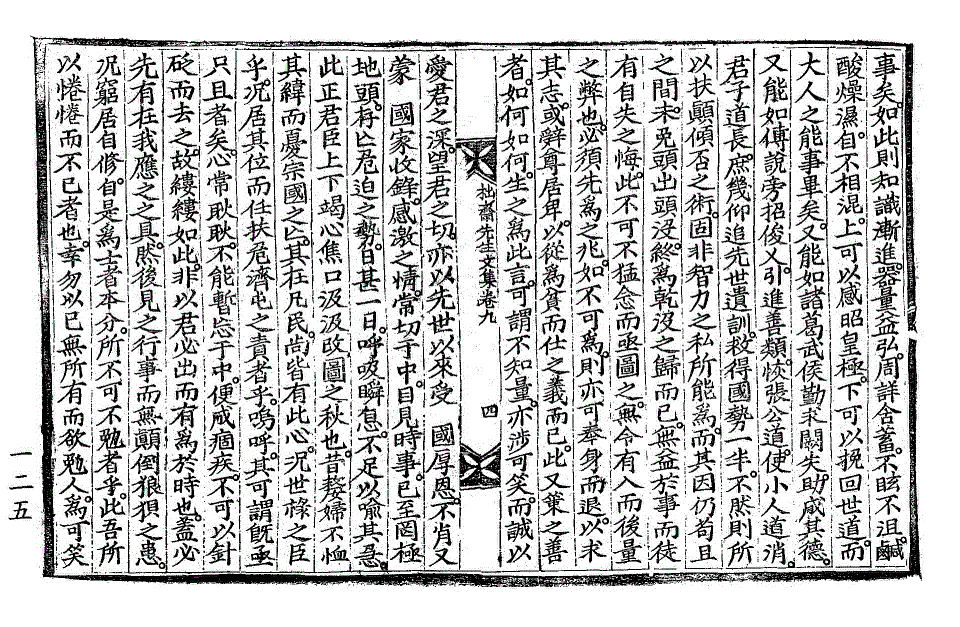 事矣。如此則知識漸進。器量益弘。周詳含蓄。不眩不沮。鹹
酸燥濕。自不相混。上可以感昭皇極。下可以挽回世道。而
大人之能事畢矣。又能如諸葛武侯勤求闕失。助成其德。
又能如傅說旁招俊乂。引進善類。恢張公道。使小人道消。
君子道長。庶幾仰追先世遺訓。救得國勢一半。不然則所
以扶顚傾否之術。固非智力之私所能爲。而其因仍苟且
之間。未免頭出頭沒。終爲乾沒之歸而已。無益於事而徒
有自失之悔。此不可不猛念而亟圖之。無令有入而後量
之弊也。必須先爲之兆。如不可爲。則亦可奉身而退。以求
其志。或辭尊居卑。以從爲貧而仕之義而已。此又策之善
者。如何如何。生之爲此言。可謂不知量。亦涉可笑。而誠以
拙齋先生文集卷九
四
愛君之深。望君之切。亦以先世以來受 國厚恩。不肖又
蒙 國家收錄。感激之情。常切于中。目見時事。已至罔極
地頭。存亡危迫之勢。日甚一日。呼吸瞬息。不足以喩其急。
此正君臣上下竭心焦口汲汲改圖之秋也。昔嫠婦不恤
其緯而憂宗國之亡。其在凡民。尙皆有此心。況世祿之臣
乎。況居其位而任扶危濟屯之責者乎。嗚呼。其可謂旣亟
只且者矣。心常耿耿。不能暫忘于中。便成痼疾。不可以針
砭而去之。故縷縷如此。非以君必出而有爲於時也。蓋必
先有在我應之之具。然後見之行事而無顚倒狼狽之患。
况窮居自修。自是爲士者本分。所不可不勉者乎。此吾所
以惓惓而不已者也。幸勿以已無所有而欲勉人。爲可笑
一二五